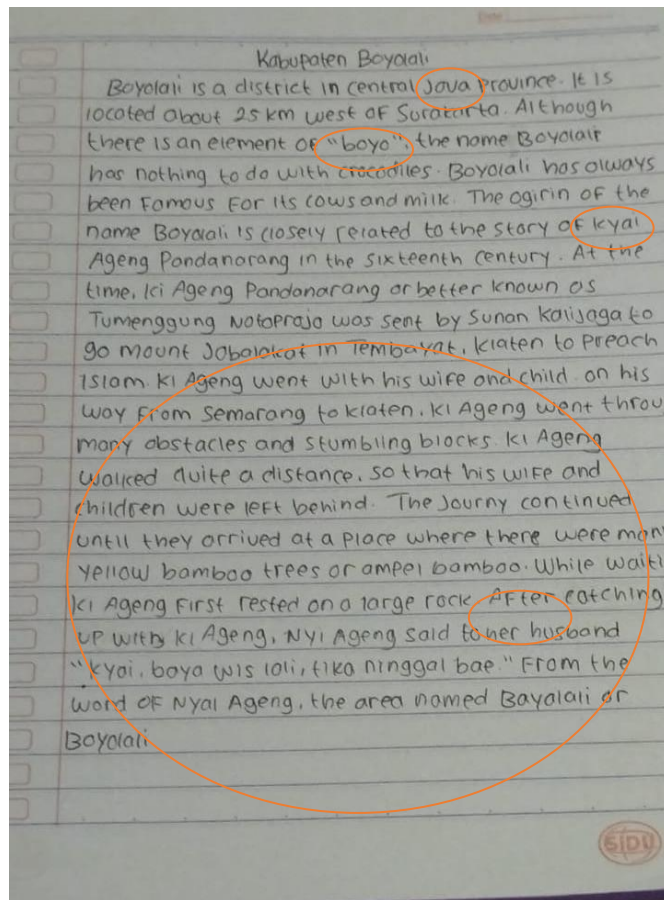 Kabupaten Boyolali
Boyolali is a district in central Java Province. It is
located about 25 km west of Suratarta. Although
there is an element of "boyo", the name Boyolali
has nothing to do with crocodiles. Boyolali has always
been Famous For its cows and milk. The ogirin of the
name Boyolali is closely related to the story of kyai
Ageng Pandanarang in the sixteenth century. At the
time, ki Ageng Pandanarang or better known as
Tumenggung Notoprajo was sent by Sunan Kalijaga to
go mount Jabalakat in Tembayat, klaten to preach
Islam. Ki Ageng went with his wife and child. on his
way From Semarang to klaten. ki Ageng went throu
many obstacles and stumbling blocks. ki Ageng
walked quite a distance, so that his wife and
children were left behind. The Journy continued
until they arrived at a place where there were man
yellow bamboo trees or ampel bamboo. While waiti
ki Ageng First rested on a large rock. AFter catching
up with ki Ageng, Nyi Ageng said to her husband
"kyai, boya wis lali, tika ninggal bae." From the
word OF Nyai Ageng, the area named Bayalali or
Boyolali
SIDU